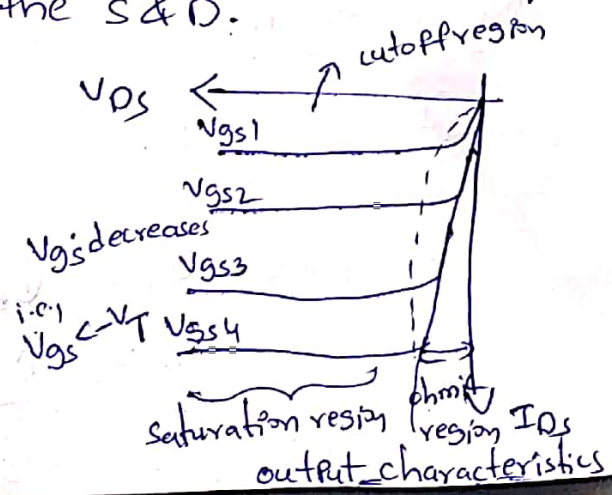 the S & D.
cutoff region
VDS
Vgs1
Vgs2
Vgs decreases
Vgs3
i.e.,
Vgs <-VT
Vgs4
ohmic
saturation region
region
IDS
output characteristics